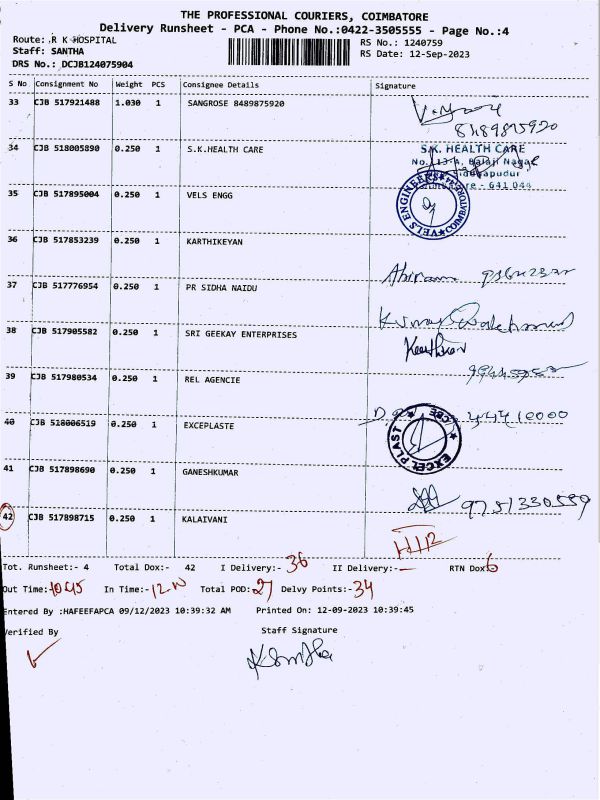 THE PROFESSIONAL COURIERS, COIMBATORE
Delivery Runsheet - PCA - Phone No.:0422-3505555 - Page No.:4
Route:.R K HOSPITAL
RS No.: 1240759
Staff: SANTHA
RS Date: 12-Sep-2023
DRS No.: DCJB124075904
S No Consignment No Weight PCS Consignee Details Signature
33 CJB 517921488 1.030 1 SANGROSE 8489875920
8489875920
34 CJB 518005890 0.250 1 S.K.HEALTH CARE S.K. HEALTH CARE
No. 13-A, Balaji Nagar
- 641 044
35 CJB 517895004 0.250 1 VELS ENGG
VELS ENGINEERS COIMBATORE
36 CJB 517853239 0.250 1 KARTHIKEYAN
37 CJB 517776954 0.250 1 PR SIDHA NAIDU
38 CJB 517905582 0.250 1 SRI GEEKAY ENTERPRISES
39 CJB 517980534 0.250 1 REL AGENCIE
40 CJB 518006519 0.250 1 EXCEPLASTE
EXCEL PLAST
41 CJB 517898690 0.250 1 GANESHKUMAR
9751330559
42 CJB 517898715 0.250 1 KALAIVANI
Tot. Runsheet:- 4 Total Dox:- 42 I Delivery:- 36 II Delivery:- — RTN Dox 6
Out Time:-10.45 In Time:- Total POD:- 27 Delvy Points:- 34
Entered By :HAFEEFAPCA 09/12/2023 10:39:32 AM Printed On: 12-09-2023 10:39:45
Verified By Staff Signature